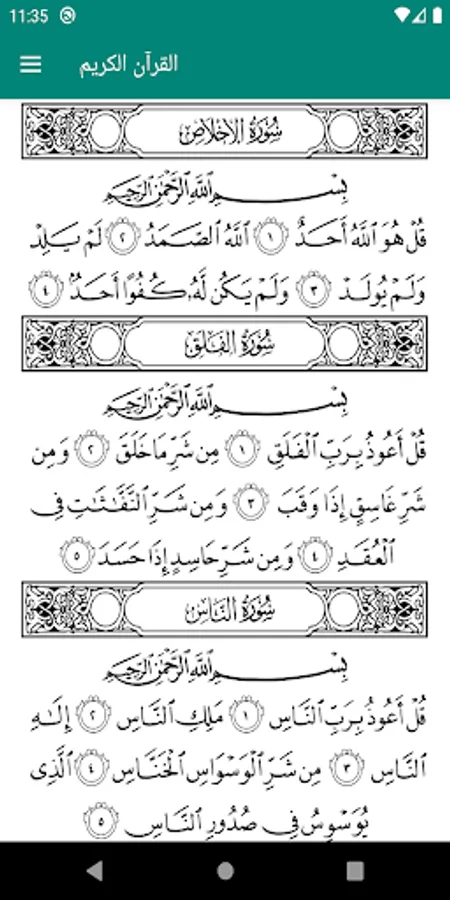 11:35
القرآن الكريم
سُورَةُ الإِخْلَاصِ
بِسْمِ ٱللَّهِ ٱلرَّحْمَٰنِ ٱلرَّحِيمِ
قُلْ هُوَ ٱللَّهُ أَحَدٌ ١ ٱللَّهُ ٱلصَّمَدُ ٢ لَمْ يَلِدْ
وَلَمْ يُولَدْ ٣ وَلَمْ يَكُن لَّهُۥ كُفُوًا أَحَدٌۢ ٤
سُورَةُ الفَلَقِ
بِسْمِ ٱللَّهِ ٱلرَّحْمَٰنِ ٱلرَّحِيمِ
قُلْ أَعُوذُ بِرَبِّ ٱلْفَلَقِ ١ مِن شَرِّ مَا خَلَقَ ٢ وَمِن
شَرِّ غَاسِقٍ إِذَا وَقَبَ ٣ وَمِن شَرِّ ٱلنَّفَّٰثَٰتِ فِى
ٱلْعُقَدِ ٤ وَمِن شَرِّ حَاسِدٍ إِذَا حَسَدَ ٥
سُورَةُ النَّاسِ
بِسْمِ ٱللَّهِ ٱلرَّحْمَٰنِ ٱلرَّحِيمِ
قُلْ أَعُوذُ بِرَبِّ ٱلنَّاسِ ١ مَلِكِ ٱلنَّاسِ ٢ إِلَٰهِ
ٱلنَّاسِ ٣ مِن شَرِّ ٱلْوَسْوَاسِ ٱلْخَنَّاسِ ٤ ٱلَّذِى
يُوَسْوِسُ فِى صُدُورِ ٱلنَّاسِ ٥